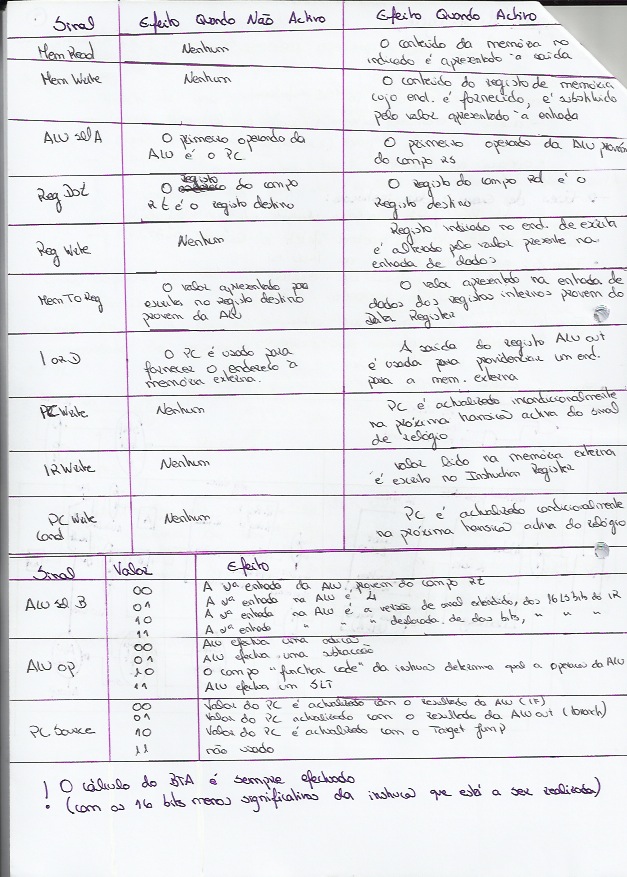 Sinal Efeito Quando Não Activo Efeito Quando Activo
Mem Read Nenhum O conteúdo da memória no
indicado é apresentado à saída
Mem Write Nenhum O conteúdo do registo de memória
cujo end. é fornecido, é substituído
pelo valor apresentado à entrada
ALU sel A O primeiro operando da O primeiro operado da ALU provém
ALU é o PC do campo RS
Reg Dst O registo do campo O registo do campo Rd é o
Rt é o registo destino Registo destino
Reg Write Nenhum Registo indicado no end. de escrita
é alterado pelo valor presente na
entrada de dados
Mem To Reg O valor apresentado para O valor apresentado na entrada de
escrita no registo destino dados dos registos internos provem do
provem da ALU Data Register
I or D O PC é usado para A saída do registo ALU out
fornecer o endereço à é usada para providenciar um end.
memória externa. para a mem. externa
PC Write Nenhum PC é actualizado incondicionalmente
na próxima transição activa do sinal
de relógio
IR Write Nenhum Valor lido na memória externa
é escrito no Instruction Register
PC Write Nenhum PC é actualizado condicionalmente
Cond na próxima transição activa do relógio
Sinal Valor Efeito
ALU sel B 00 A 2ª entrada da ALU provem do campo Rt
01 A 2ª entrada na ALU é 4
10 A 2ª entrada na ALU é a versão de sinal extendido, dos 16 LS bits do IR
11 A 2ª entrada " " " deslocada de dois bits, " " "
ALU op 00 ALU efectua uma adição
01 ALU efectua uma subtracção
10 O campo "function code" da instrução determina qual a operação da ALU
11 ALU efectua um SLT
PC Source 00 Valor do PC é actualizado com o resultado da ALU (IF)
01 Valor do PC actualizado com o resultado da ALU out (branch)
10 Valor do PC é actualizado com o Target Jump
11 não usado
! O cálculo do BTA é sempre efectuado
(com os 16 bits menos significativos da instrução que está a ser realizada)